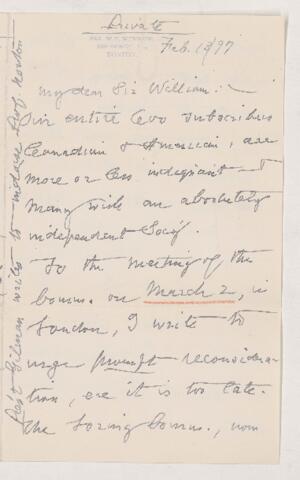 Private
Feb. 19/97
My dear Sir William: -
Our entire 600 subscribers
Canadian & American, are
more or less indignant &
many wish an absolutely
independent Socy.
To the meeting of the
Comm. on March 2, in
London, I write to
urge prompt reconsidera-
tion, ere it is too late.
The Loring Comm., now
Pres't Gilman writes to indorse Prof. Norton